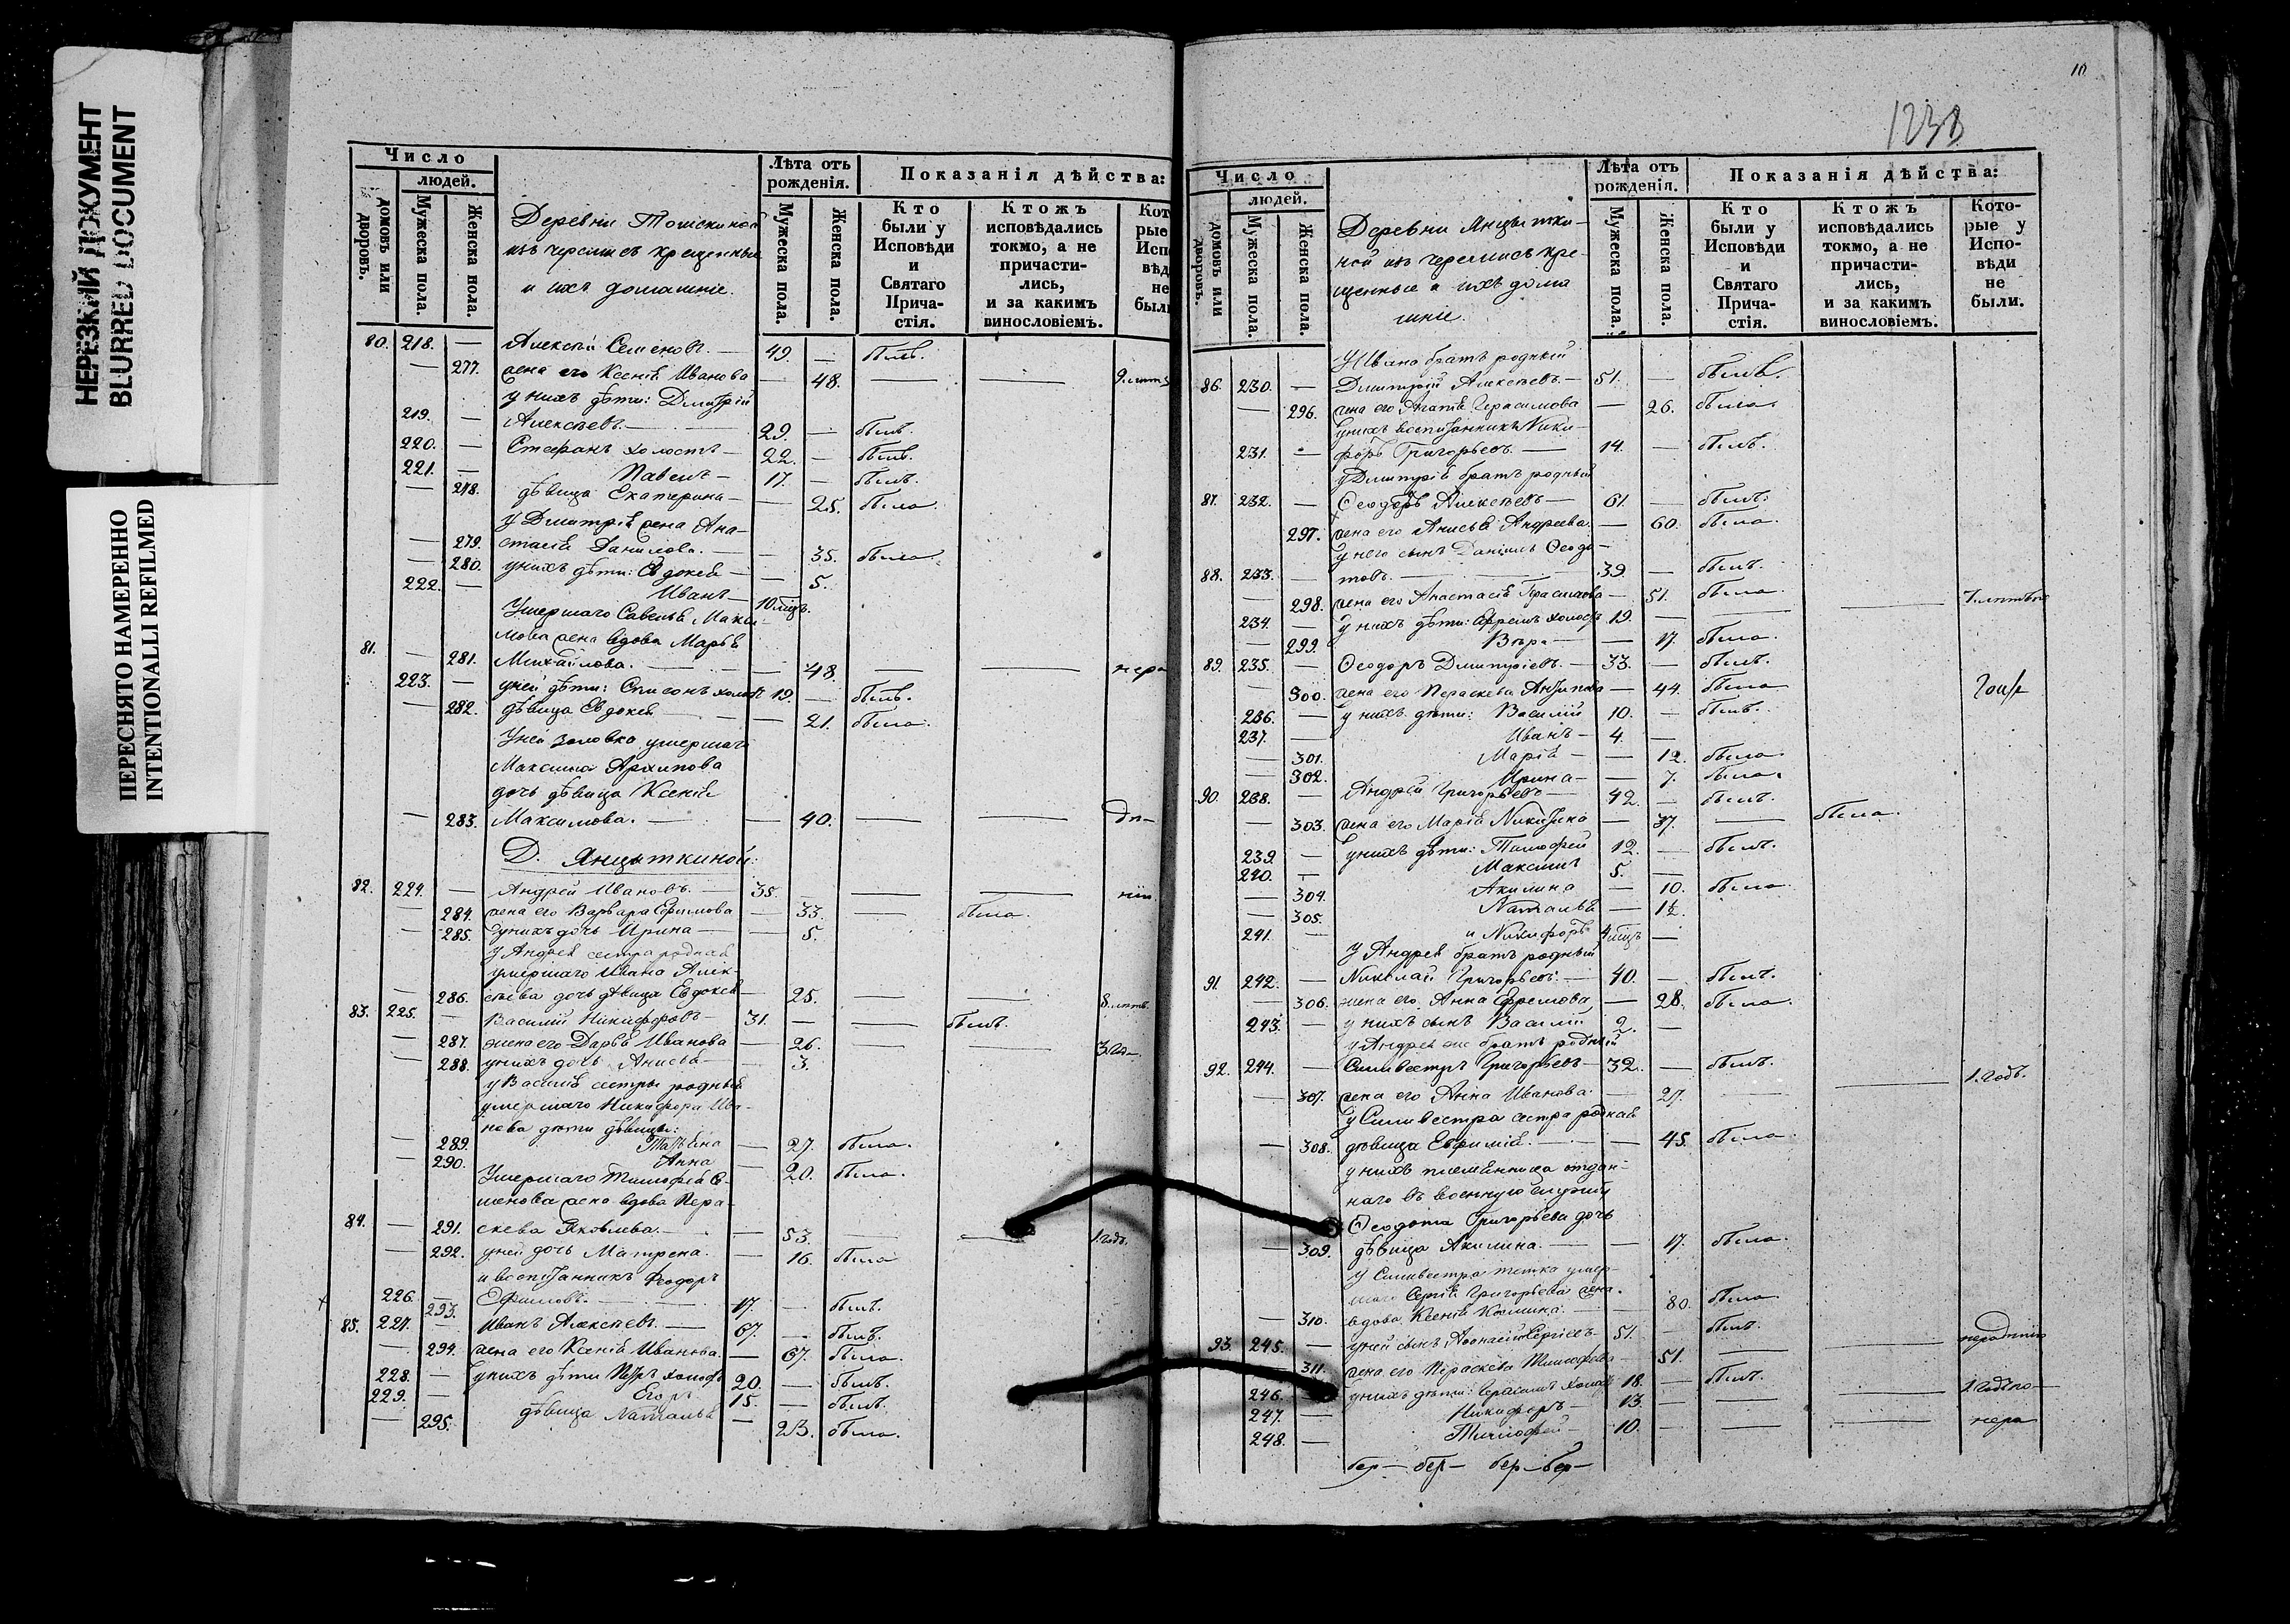 НЕРЕЗКИЙ ДОКУМЕНТ
BLURRED DOCUMENT
ПЕРЕСНЯТО НАМЕРЕННО
INTENTIONALLI REFILMED
Число
людей.
домовъ или дворовъ.
Мужеска пола.
Женска пола.
Деревни Тошскиной
изъ черемисъ крещенные
и ихъ домашніе.
Лѣта отъ рожденія.
Мужеска пола.
Женска пола.
Показанія дѣйства:
Кто были у Исповѣди и Святаго Прича-стія.
Ктожъ исповѣдались токмо, а не причасти-лись, и за какимъ винословіемъ.
Кот рые Исп вѣд не был
80. 218. — Алексѣй Семеновъ. — 49. — былъ.
— 277. жена его Ксенія Иванова — 48. — —
у нихъ дѣти: Димитрій
219. — Алексѣевъ. — 29. — былъ.
220. — Стефанъ холостъ — 22. — былъ.
221. — Павелъ — 17. — былъ.
— 278. дѣвица Екатерина — 25. была
у Димитрія жена Ана-
— 279. стасія Данилова. — — 35. была
— 280. у нихъ дѣти: Евдокія — — 5.
222. — Иванъ — 10 мцъ.
Умершаго Савелья Макси-
мова жена вдова Марья
81. — 281. Михайлова. — — 48. — —
223. — у ней дѣти: Спиридонъ холостъ 19. — былъ.
— 282. дѣвица Евдокія — — 21. была.
У ней золовка умершаго
Максима Архипова
дочь дѣвица Ксенія
— 283. Максимова. — — 40. — —
Д. Янцыткиной:
82. 224. — Андрей Ивановъ. — 35. — —
— 284. жена его Варвара Ефимова — 33. — была.
— 285. у нихъ дочь Ирина — — 5.
у Андрея сестра родная
умершаго Ивана Алек-
— 286. сѣева дочь дѣвица Евдокія — 25. — —
83. 225. — Василій Никифоровъ — 31. — — былъ.
— 287. жена его Дарья Иванова — 26. — —
— 288. у нихъ дочь Анисья — — 3.
у Василія сестры родныя
умершаго Никифора Ива-
нова дѣти дѣвицы:
— 289. Татьяна — 27. была.
— 290. Анна — 20. была.
Умершаго Тимофея Се-
менова жена вдова Пера-
84. — 291. скева Яковлева. — — 53. — — 1. годъ.
— 292. у ней дочь Матрена. — 16. была
и воспитанникъ Феодоръ
226. — 293. Ефимовъ. — 17. — былъ.
85. 227. — Иванъ Алексѣевъ. — 67. — былъ.
— 294. жена его Ксенія Иванова. — 67. была.
228. — у нихъ дѣти Петръ холостъ 20. — былъ.
229. — Егоръ 15. — былъ.
— 295. дѣвица Наталья — 23. была.
10
1238
Число
людей.
домовъ или дворовъ.
Мужеска пола.
Женска пола.
Деревни Янцытки-
ной изъ черемисъ кре-
щенные и ихъ дома
шніе.
Лѣта отъ рожденія.
Мужеска пола.
Женска пола.
Показанія дѣйства:
Кто были у Исповѣди и Святаго Прича-стія.
Ктожъ исповѣдались токмо, а не причасти-лись, и за какимъ винословіемъ.
Кото-рые у Испо-вѣди не были.
У Ивана братъ родный
86. 230. — Димитрій Алексѣевъ. — 51. — былъ.
— 296. жена его Агафія Герасимова — 26. была
у нихъ воспитанникъ Ники-
231. — форъ Григорьевъ. — 14. — былъ.
у Димитрія братъ родный
87. 232. — Ѳеодоръ Алексѣевъ — 61. — былъ.
— 297. жена его Анисья Андреева. — 60. была.
у него сынъ Даніилъ Ѳеодо-
88. 233. — товъ. — 39. — былъ.
— 298. жена его Анастасія Герасимова — 51. была
234. — у нихъ дѣти: Ефремъ холостъ 19. —
— 299. Вѣра — — 17. была.
89. 235. — Ѳеодоръ Димитріевъ. — 33. — былъ.
— 300. жена его Параскева Антипова — 44. была
236. — у нихъ дѣти: Василій 10. — былъ.
237. — Иванъ — 4. —
— 301. Марія — — 12. была.
— 302. Ирина — — 7. была.
90. 238. — Андрей Григорьевъ — 42. — былъ.
— 303. жена его Марія Никитина — 37. — была.
239. — у нихъ дѣти: Тимофей 12. — былъ.
240. — Максимъ 5. —
— 304. Акилина — 10. была
— 305. Наталья — 1½.
241. — и Никифоръ 4 мцъ —
У Андрея братъ родный
91. 242. — Николай Григорьевъ — 40. — былъ.
— 306. жена его Анна Ефремова — 28. была.
243. — у нихъ сынъ Василій 2. —
у Андрея же братъ родный
92. 244. — Силивестръ Григорьевъ — 32. — былъ.
— 307. жена его Анна Иванова — 27. — — 1. годъ.
у Силивестра сестра родная
— 308. дѣвица Евфимія. — — 45. была.
у нихъ племянница отдан-
наго въ военную службу
Ѳеодота Григорьева дочь
— 309. дѣвица Акилина. — — 17. была.
у Силивестра тетка умер-
шаго Сергія Григорьева жена
— 310. вдова Ксенія Козмина. — — 80. была
93. 245. — у ней сынъ Афонасій Сергіевъ 51. — былъ.
— 311. жена его Параскева Тимофеева — 51. — —
246. — у нихъ дѣти: Герасимъ холостъ 18. — былъ.
247. — Никифоръ — 13. — — —
248. — Тимофей — 10. — — —